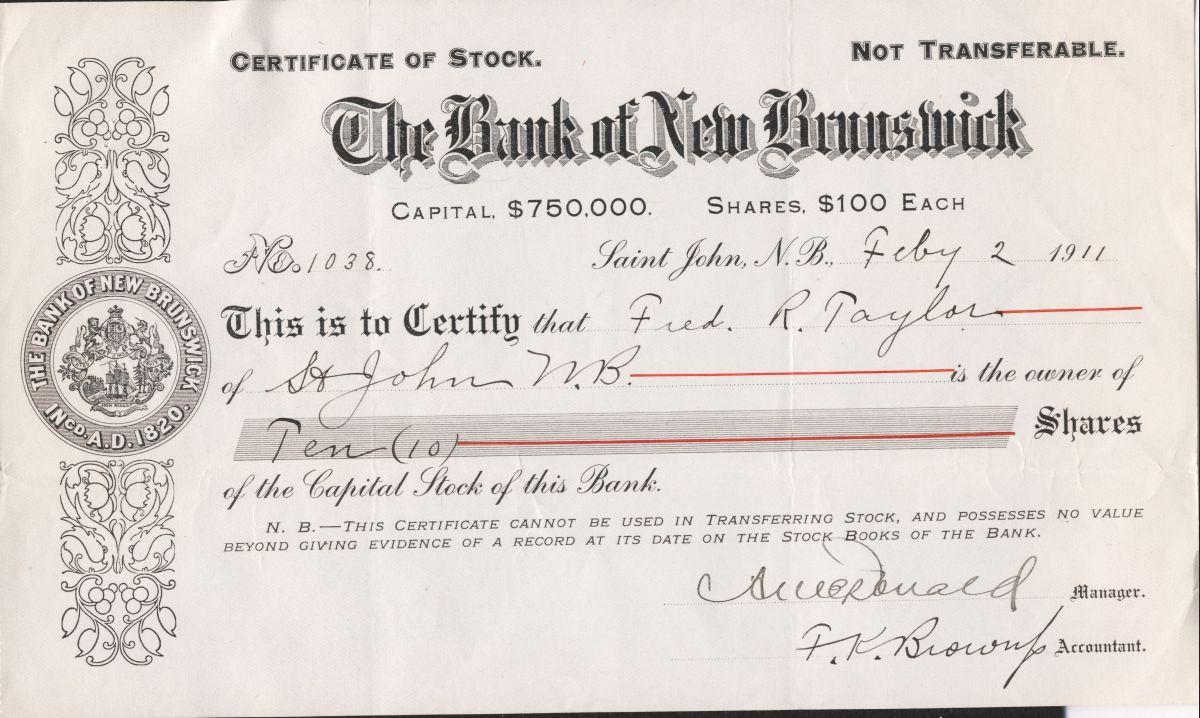 CERTIFICATE OF STOCK. NOT TRANSFERABLE.
The Bank of New Brunswick
CAPITAL, $750,000. SHARES, $100 EACH
No. 1038. Saint John, N.B., Feby 2 1911
This is to Certify that Fred. R. Taylor
of St John N.B. is the owner of
Ten (10) Shares
of the Capital Stock of this Bank.
N. B.—THIS CERTIFICATE CANNOT BE USED IN TRANSFERRING STOCK, AND POSSESSES NO VALUE
BEYOND GIVING EVIDENCE OF A RECORD AT ITS DATE ON THE STOCK BOOKS OF THE BANK.
Manager.
F. K. Brown Accountant.
THE BANK OF NEW BRUNSWICK
INCD. A.D. 1820.